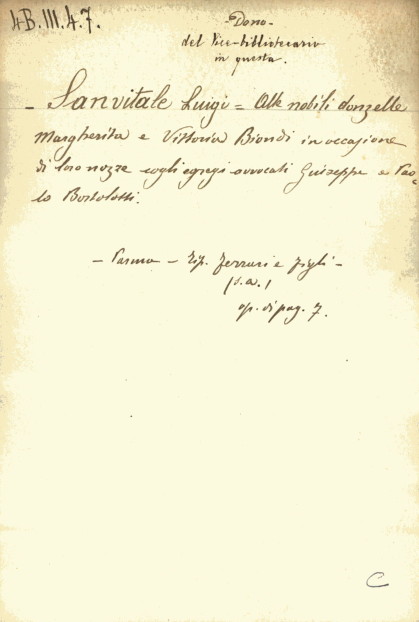 4B.III.4.7.
Dono
del Vice-bibliotecario
in questa.
- Sanvitale Luigi = Alle nobili donzelle
Margherita e Vittoria Biondi in occasione
di loro nozze cogli egregi avvocati Giuseppe e Pao-
lo Bortolotti.
- Parma - Tip. Ferrari e figli -
(s.a.)
op. di pag. 7.
C